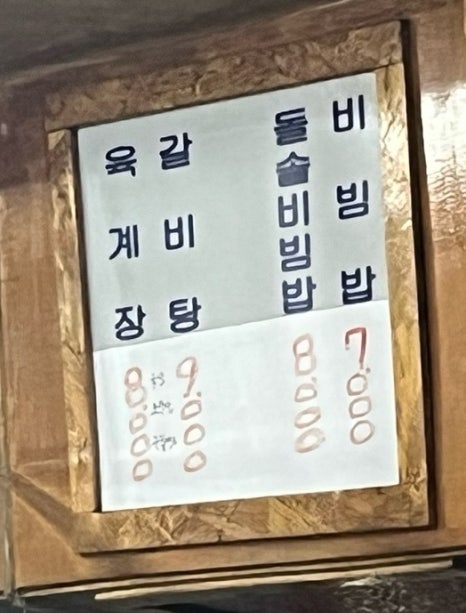 비빔밥 7000
돌솥비빔밥 8000
갈비탕 9000
육계장 8000